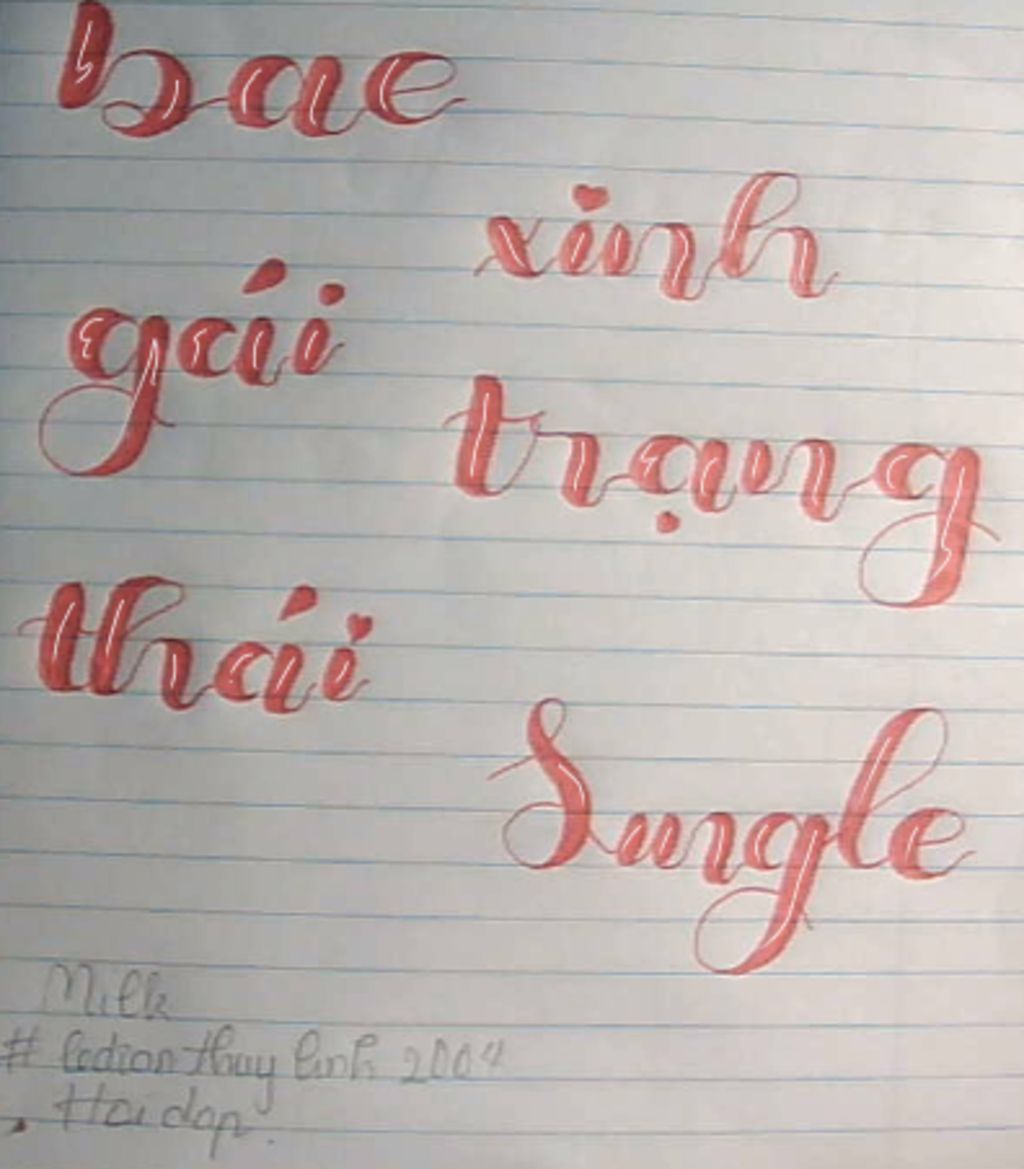 bae
xinh
gái
trạng
thái
Sungle
Milk
# ledioanthuy linh 2004
Hoidap